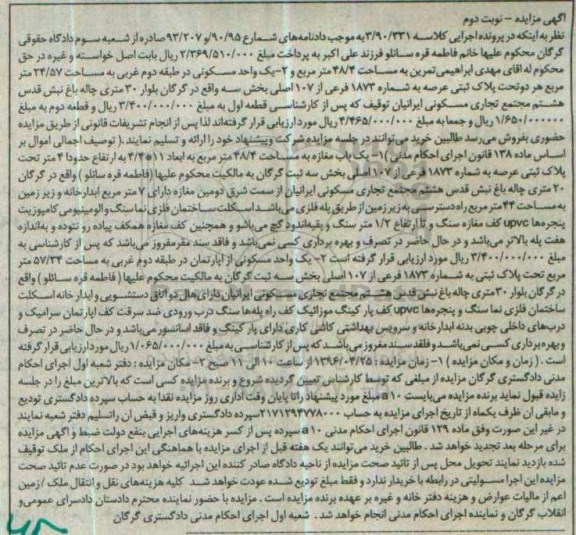 آگهی مزایده – نوبت دوم
نظر به اینکه در پرونده اجرایی کلاسه ۳/۹۰/۳۳۱ به موجب دادنامه‌های شماره ۹۰/۹۵ و ۹۳/۲۰۷ صادره از شعبه سوم دادگاه حقوقی
گرگان محکوم علیها خانم فاطمه قره سانلو فرزند علی اکبر به پرداخت مبلغ ۲/۳۶۹/۵۱۰/۰۰۰ ریال بابت اصل خواسته و غیره در حق
محکوم له اقای مهدی ابراهیمی تمرین به مساحت ۴۸/۴ متر مربع و ۲-یک واحد مسکونی در طبقه دوم غربی به مساحت ۲۴/۵۷ متر
مربع هر دو تحت پلاک ثبتی عرصه به شماره ۱۸۷۳ فرعی از ۱۰۷ اصلی بخش سه واقع در گرگان بلوار ۳۰ متری چاله باغ نبش قدس
هشتم مجتمع تجاری مسکونی ایرانیان توقیف که پس از کارشناسی قطعه اول به مبلغ ۳/۴۰۰/۰۰۰/۰۰۰ ریال و قطعه دوم به مبلغ
۱/۶۵۰/۰۰۰۰۰۰ ریال و جمعا به مبلغ ۴/۴۶۵/۰۰۰/۰۰۰ ریال مورد ارزیابی قرار گرفته‌اند لذا پس از انجام تشریفات قانونی از طریق مزایده
حضوری بفروش می‌رسد طالبین خرید می‌توانند در جلسه مزایده شرکت و پیشنهاد خود را ارائه و تسلیم نمایند .( توصیف اجمالی اموال بر
اساس ماده ۱۳۸ قانون اجرای احکام مدنی )۱- یک باب مغازه به مساحت ۴۸/۴ متر مربع به ابعاد ۱۱*۴/۴ به ارتفاع حدودا ۴ متر تحت
پلاک ثبتی عرصه به شماره ۱۸۷۳ فرعی از ۱۰۷ اصلی بخش سه ثبت گرگان به مالکیت محکوم علیها (فاطمه قره سانلو ) واقع در گرگان
۲۰ متری چاله باغ نبش قدس هشتم مجتمع تجاری مسکونی ایرانیان از سمت شرق دومین مغازه دارای ۷ متر مربع ابدارخانه و زیر زمین
به مساحت ۴۴ متر مربع راه دسترسی به زیر زمین از طریق پله فلزی می‌باشد اسکلت ساختمان فلزی نما سنگ و الومینیومی کامپوزیت
پنجره‌ها upvc کف مغازه سنگ و تا ارتفاع ۱/۲ متر سنگ و بقیه اندود گچ می‌باشد و همچنین کف مغازه همکف پیاده رو نبوده و به اندازه
هفت پله بالاتر می‌باشد و در حال حاضر در تصرف و بهره برداری کسی نمی‌باشد و فاقد سند مفروزی می‌باشد که پس از کارشناسی به
مبلغ ۳/۴۰۰/۰۰۰/۰۰۰ ریال مورد ارزیابی قرار گرفته است ۲- یک واحد مسکونی از اپارتمان در طبقه دوم غربی به مساحت ۵۷/۳۴ متر
مربع تحت پلاک ثبتی به شماره ۱۸۷۳ فرعی از ۱۰۷ اصلی بخش سه ثبت گرگان به مالکیت محکوم علیها ( فاطمه قره سانلو ) واقع
در گرگان بلوار ۳۰ متری چاله باغ نبش قدس هشتم مجتمع تجاری مسکونی ایرانیان دارای هال دو اتاق دستشویی و ابدار خانه اسکلت
ساختمان فلزی نما سنگ و پنجره‌ها upvc کف پار کینگ موزائیک کف راه پله‌ها سنگ درب ورودی ضد سرقت کف اپارتمان سرامیک و
درب‌های داخلی چوبی بدنه ابدارخانه و سرویس بهداشتی کاشی کاری دارای پار کینگ و فاقد اسانسور می‌باشد و در حال حاضر در تصرف
و بهره برداری کسی نمی‌باشد و فاقد سند مفروز می‌باشد که پس از کارشناسی به مبلغ ۱/۰۶۵/۰۰۰/۰۰۰ ریال مورد ارزیابی قرار گرفته
است . ( زمان و مکان مزایده ) ۱- زمان مزایده : ۱۳۹۶/۰۴/۲۵ از ساعت ۱۰ الی ۱۱ صبح ۲- مکان مزایده : دفتر شعبه اول اجرای احکام
مدنی دادگستری گرگان مزایده از مبلغی که توسط کارشناس تعیین گردیده شروع و برنده مزایده کسی است که بالاترین مبلغ را در جلسه
زایده قبول نماید برنده مزایده می‌بایست ۱۰ a مبلغ مورد پیشنهاد را تا پایان وقت اداری روز مزایده نقدا به حساب سپرده دادگستری تودیع
و مابقی ان ظرف یکماه از تاریخ اجرای مزایده به حساب ۲۱۷۱۲۹۴۷۷۸۰۰۰ سپرده دادگستری واریز و فیض ان را تسلیم دفتر شعبه نمایند
در غیر این صورت وفق ماده ۱۲۹ قانون اجرای احکام مدنی ۱۰ a سپرده پس از کسر هزینه‌های اجرایی بنفع دولت ضبط و آگهی مزایده
برای مرحله بعد تجدید خواهد شد . طالبین خرید می‌توانند یک هفته قبل از اجرای مزایده با هماهنگی این اجرای احکام از ملک توقیف
شده بازدید نمایند تحویل محل پس از تائید صحت مزایده از ناحیه دادگاه صادر کننده این اجرائیه خواهد بود در صورت عدم تائید صحت
مزایده این اجرا مسولیتی در رابطه با خریدار ندارد و فقط مبلغ تودیع شده عودت خواهد شد کلیه هزینه‌های نقل و انتقال ملک ازمین
اعم از مالیات عوارض و هزینه دفتر خانه و غیره بر عهده برنده مزایده است . مزایده با حضور نماینده محترم دادستان دادسرای عمومی و
انقلاب گرگان و نماینده اجرای احکام مدنی انجام خواهد شد . شعبه اول اجرای احکام مدنی دادگستری گرگان